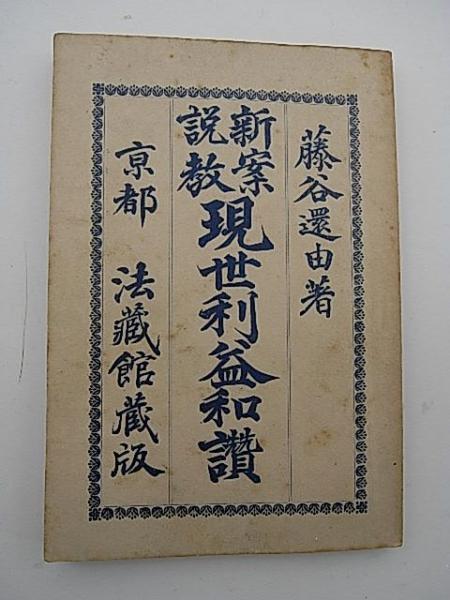 藤谷還由著
新案
説教
現世利益和讚
京都 法藏館蔵版